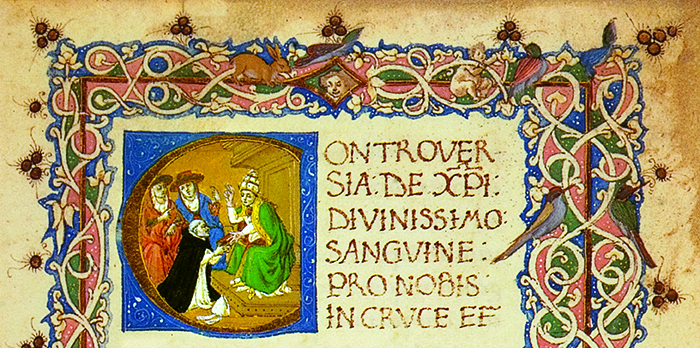 CONTROVER
SIA: DE XPI:
DIVINISSIMO:
SANGVINE:
PRO NOBIS
IN CRVCE EF